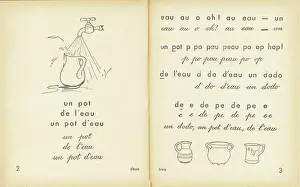 un pot
de l'eau
un pot d'eau
un pot
de l'eau
un pot d'eau
2 deux
eau au o oh! au eau — un
eau au o oh! au eau — un
un pot p po pau peau po op hop!
p po pau peau po op
de l'eau d do d'eau un dodo
d do d'eau un dodo
de e de pe de pe e
e de pe de pe ee
un dodo, un pot d'eau, de l'eau
trois 3